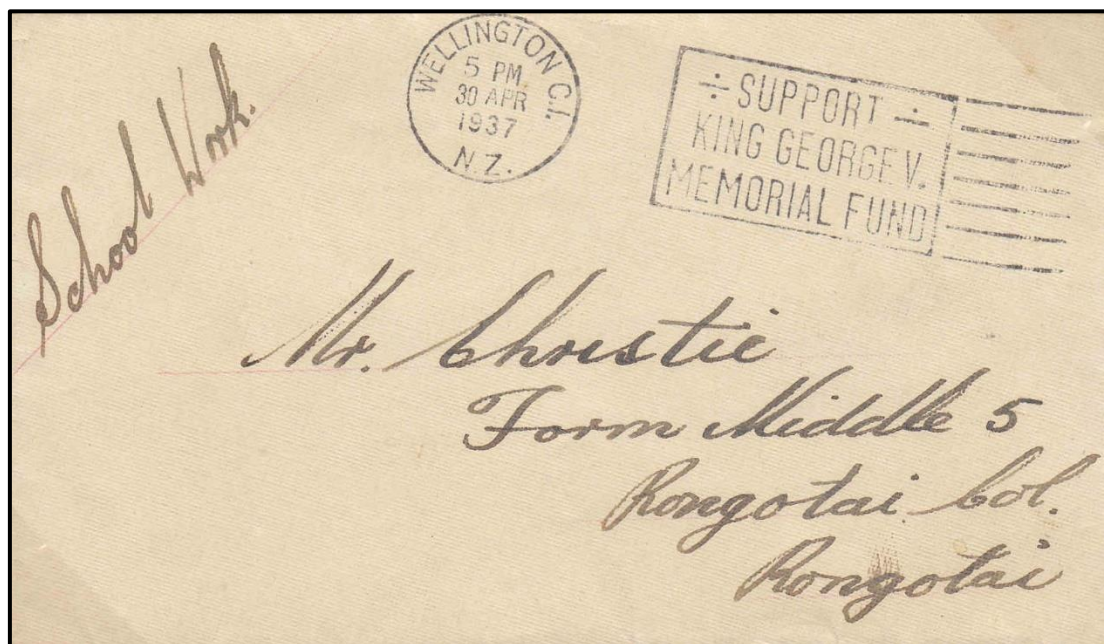 School Work.
WELLINGTON C.1.
5 PM
30 APR
1937
N.Z.
÷ SUPPORT ÷
KING GEORGE V.
MEMORIAL FUND
Mr. Christie
Form Middle 5
Rongotai Col.
Rongotai